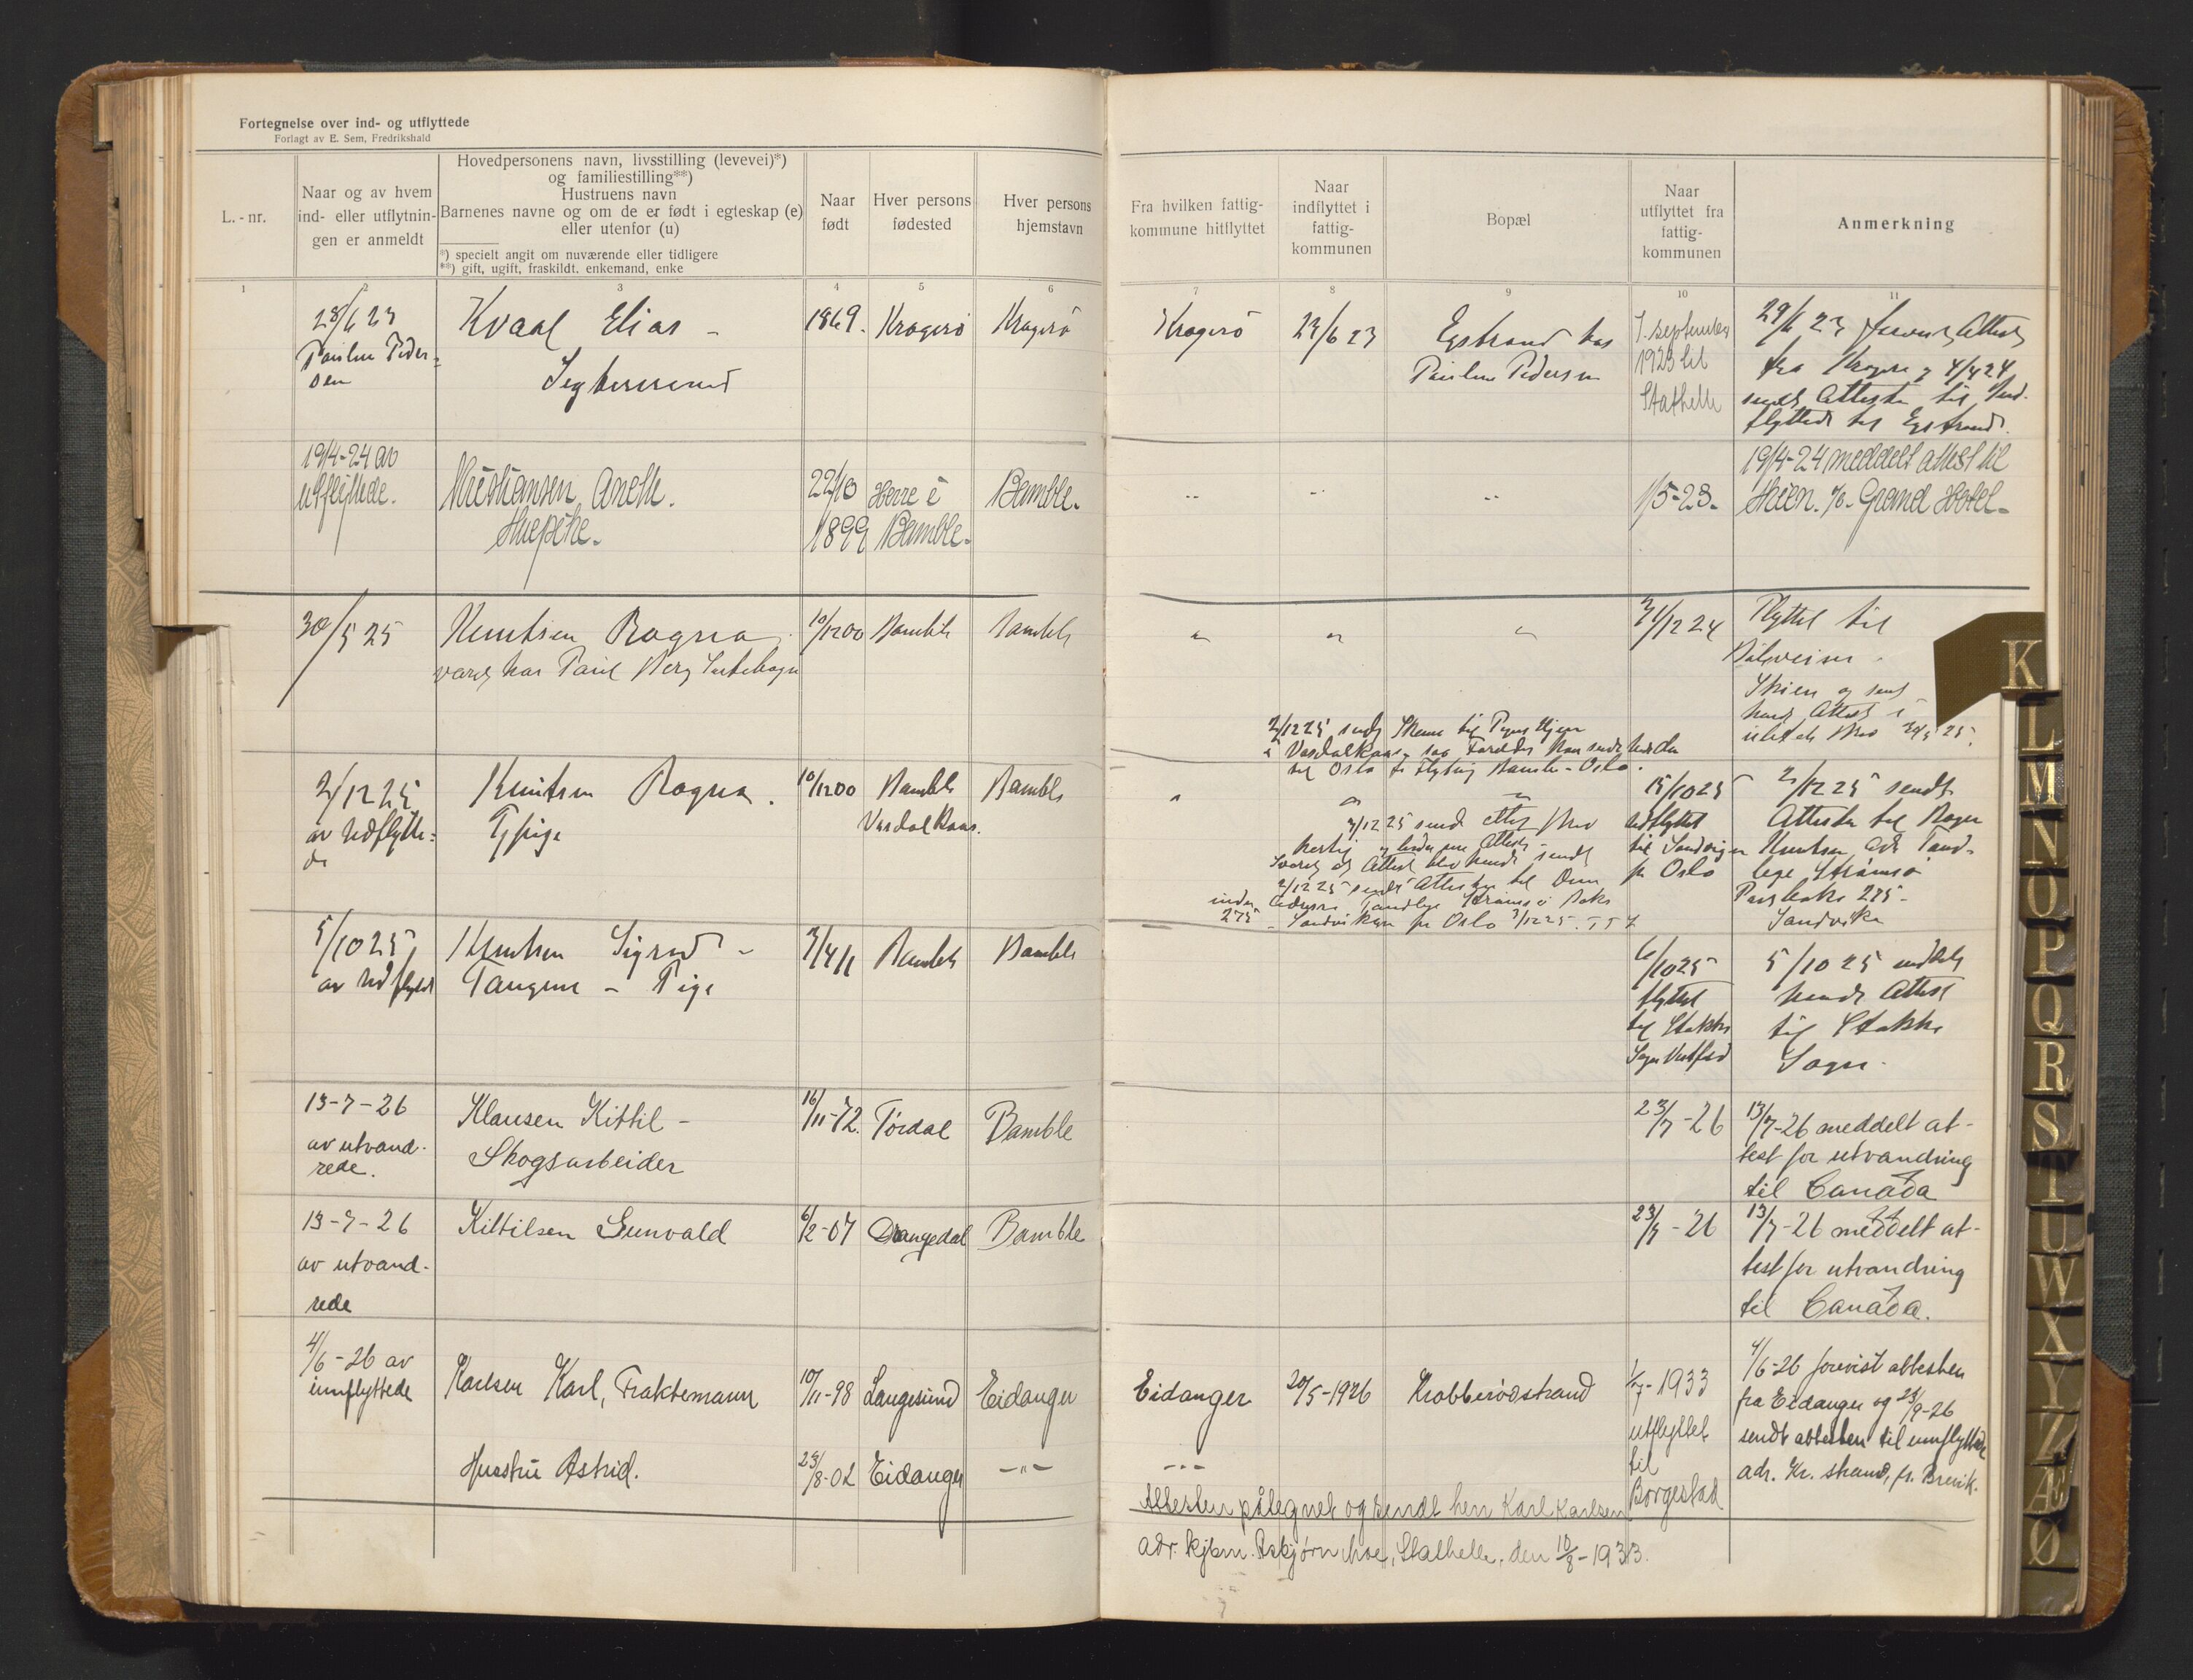 Fortegnelse over ind- og utflyttede
Forlagt av E. Sem, Fredrikshald
L.-nr.
Naar og av hvem
ind- eller utflytnin-
gen er anmeldt
Hovedpersonens navn, livsstilling (levevei)*)
og familiestilling**)
Hustruens navn
Barnenes navne og om de er født i egteskap (e)
eller utenfor (u)
*) specielt angit om nuværende eller tidligere
**) gift, ugift, fraskildt. enkemand, enke
Naar
født
Hver persons
fødested
Hver persons
hjemstavn
Fra hvilken fattig-
kommune hitflyttet
Naar
indflyttet i
fattig-
kommunen
Bopæl
Naar
utflyttet fra
fattig-
kommunen
Anmerkning
1 2 3 4 5 6 7 8 9 10 11
28/6 23
Pauline Peder-
sen
Kvaal Elias -
1869.
Kragerø
Kragerø
Kragerø
23/6 23
Egstrand hos
Pauline Pedersen
1. september
1923 til
Stathelle
29/6 23 Attest
fra Kragerø og 4/4 24
sendt Attesten til Ind-
flyttede Egstrand.
19/4-24 av
utflyttede.
Kristiansen Anethe.
22/10
1899
Herre i
Bamble.
Bamble.
1/5-23.
19/4-24 meddelt attest til
Skien. Grand Hotel-
30/5 25
Knutsen Ragna
10/12 00
Bamble
Bamble
31/12 24
Flyttet til
Skien og sendt
hende Attest i
2/12 25
av Udflytte-
de
Knutsen Ragna.
Pige
10/12 00
Bamble
Bamble
2/12 25 sendt
til Oslo Bamble - Oslo.
15/10 25
udflyttet
til Sandviken
pr Oslo
2/12 25 sendt
Attesten til Ragna
Knutsen adr Tand-
læge Strømsø
Postboks 275-
Sandvika
2/12 25 sendt Attesten til
Tandlæge Strømsø Boks
275 - Sandviken pr Oslo 3/12 25.
5/10 25
av Udflyttet
Knutsen Sigrid -
Tangene - Pige
Bamble
Bamble
6/10 25
flyttet
til Stokke
5/10 25 meddelt
hende Attest
til Stokke
Sogn.
13-7-26
av utvand-
rede.
Klausen Kittil -
Skogsarbeider
16/11-72.
Tørdal
Bamble
23/7-26
13/7-26 meddelt at-
test for utvandring
til Canada
13-7-26
av utvand-
rede
Kittilsen Gunvald
6/2-07
Drangedal
Bamble
23/7-26
13/7-26 meddelt at-
test for utvandring
til Canada.
4/6-26 av
innflyttede
Karlsen Karl, Fraktemann
10/11-98
Langesund
Eidanger
Eidanger
20/5-1926
Krabberødstrand
1/7-1933
utflyttet
til
Borgestad
4/6-26 forevist attesten
fra Eidanger og 24/9-26
sendt attesten til innflyttede
adr. Kr. strand, pr. Brevik.
Hustru Astrid.
23/8-02
Eidanger
-"-
-"-
Attesten påtegnet og sendt herr Karl Karlsen
adr. kjbm. Asbjørn Moe, Stathelle, den 10/8-1933.
K
L
M
N
O
P
Q
R
S
T
U
W
X
Y
Z
Æ
Ø